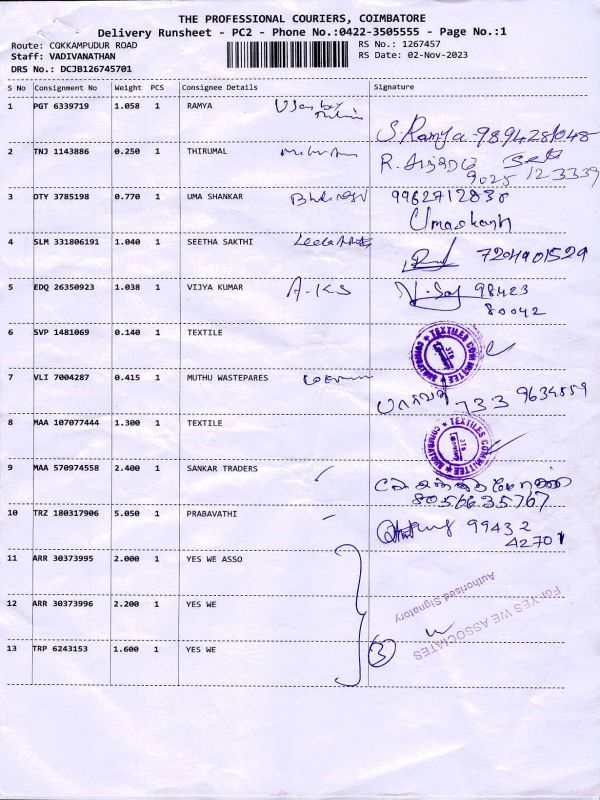 THE PROFESSIONAL COURIERS, COIMBATORE
Delivery Runsheet - PC2 - Phone No.:0422-3505555 - Page No.:1
Route: COKKAMPUDUR ROAD RS No.: 1267457
Staff: VADIVANATHAN RS Date: 02-Nov-2023
DRS No.: DCJB126745701
S No Consignment No Weight PCS Consignee Details Signature
1 PGT 6339719 1.058 1 RAMYA
S. Ramya - 9894281048
2 TNJ 1143886 0.250 1 THIRUMAL
9025 123339
3 DTY 3785198 0.770 1 UMA SHANKAR 9962712830
Umashank
4 SLM 331806191 1.040 1 SEETHA SAKTHI
7204901529
5 EDQ 26350923 1.038 1 VIJYA KUMAR A-KS 98423
80042
6 SVP 1481069 0.140 1 TEXTILE
TEXTILES COMMITTEE COIMBATORE
7 VLI 7004287 0.415 1 MUTHU WASTEPARES
733 9634559
8 MAA 107077444 1.300 1 TEXTILE
TEXTILES COMMITTEE COIMBATORE
9 MAA 570974558 2.400 1 SANKAR TRADERS
8056635767
10 TRZ 180317906 5.050 1 PRABAVATHI 99432
42701
11 ARR 30373995 2.000 1 YES WE ASSO
For YES WE ASSOCIATES
Authorised Signatory
12 ARR 30373996 2.200 1 YES WE
13 TRP 6243153 1.600 1 YES WE 3